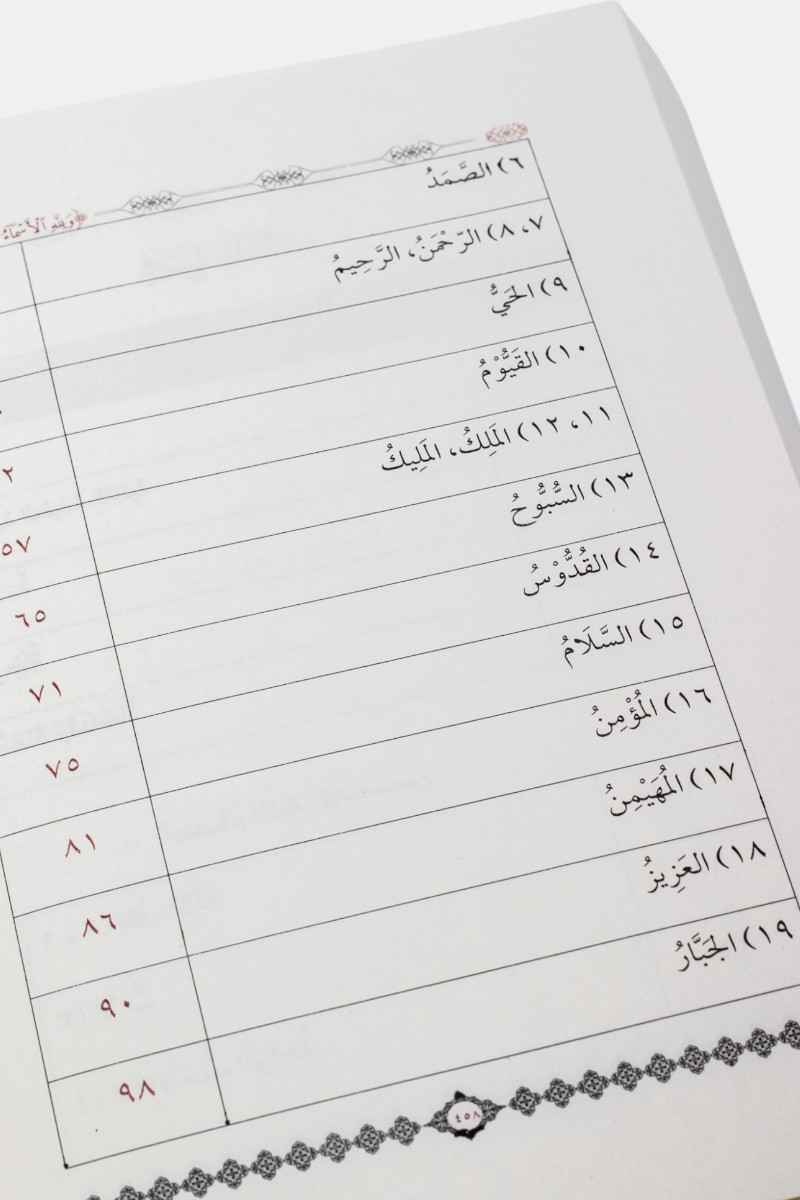 ﴿وَلِلَّهِ الْأَسْمَاءُ
٦) الصَّمَدُ
٧، ٨) الرَّحْمَنُ، الرَّحِيمُ
٩) الحَيُّ
١٠) القَيُّوْمُ ٢
١١، ١٢) المَلِكُ، المَلِيكُ ٥٧
١٣) السُّبُّوحُ ٦٥
١٤) القُدُّوْسُ ٧١
١٥) السَّلَامُ ٧٥
١٦) المُؤْمِنُ ٨١
١٧) المُهَيْمِنُ ٨٦
١٨) العَزِيزُ ٩٠
١٩) الجَبَّارُ ٩٨
٤٥٨